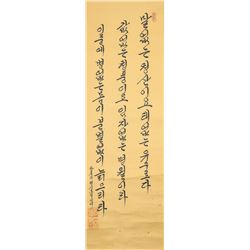 말없는 청산이오 태없는 유수로다
값없는 청풍이오 임자없는 명월이라
이중에 병없는 몸이 분별없이 늙으리라